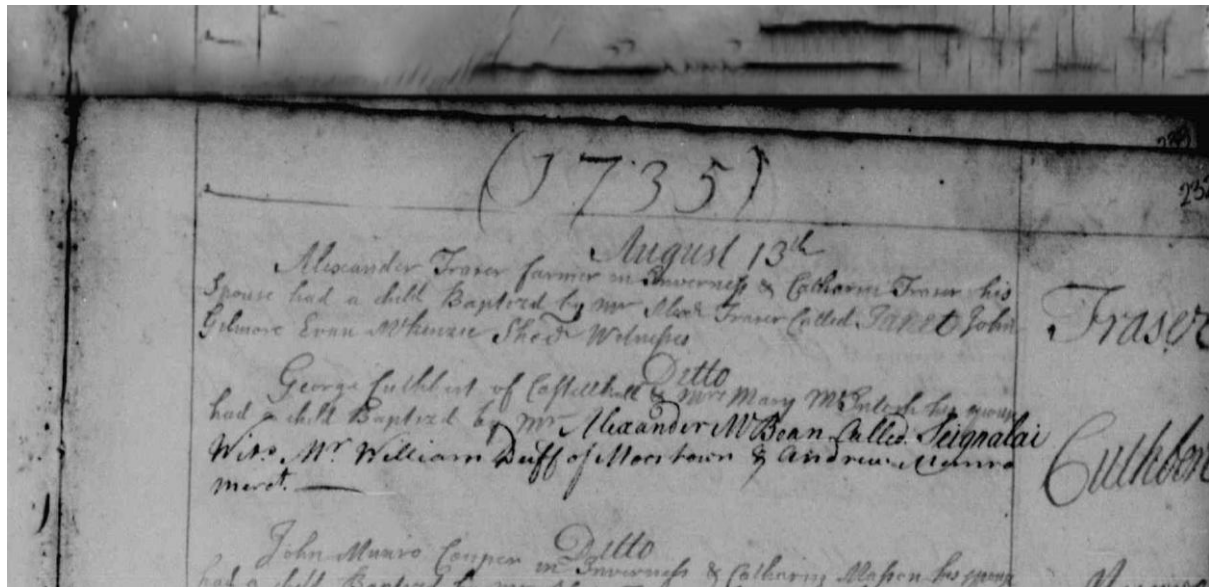 (1735)
August 13th
Alexander Fraser farmer in Inverness & Catharin Fraser his
Spouse had a child Baptized by Mr Alexr Fraser Called Janet John
Gilmore Evan McKenzie Witnesses
Fraser
Ditto
George Cuthbert of Castlehill & Mrs Mary McIntosh his spouse
had a child Baptized by Mr Alexander McBean Called Seignalai
Wits. Mr. William Duff of Moortown & Andrew Munro
mercht.
Cuthbert
Ditto
John Munro Couper in Inverness & Catharin Masson his spouse
had a child Baptized by Mr